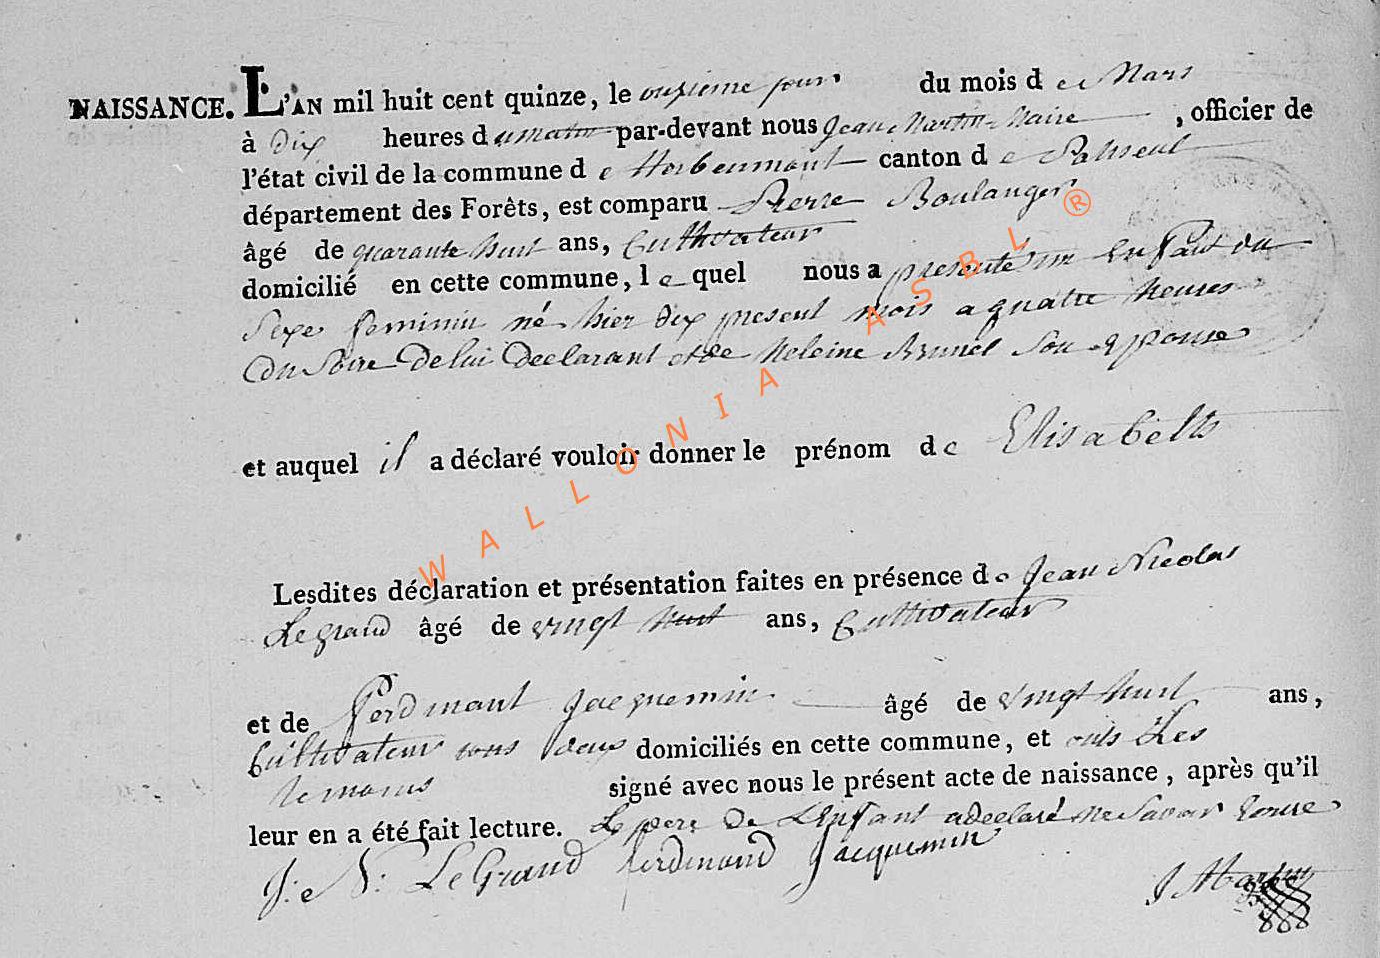 NAISSANCE. L'AN mil huit cent quinze, le onzieme jour du mois de Mars
à dix heures du matin par-devant nous Jean Martin Maire, officier de
l'état civil de la commune de Herbeumont canton de Paliseul
département des Forêts, est comparu Pierre Boulanger
âgé de quarante huit ans, Cultivateur
domicilié en cette commune, lequel nous a presenté un Enfant du
Sexe feminin né hier dix present mois a quatre heures
du Soire de lui declarant et de heleine Brunel Son Epouse
et auquel il a déclaré vouloir donner le prénom de Elisabeth
Lesdites déclaration et présentation faites en présence de Jean Nicolas
Le grand âgé de vingt huit ans, Cultivateur
et de Ferdinant Jacquemin âgé de vingt huit ans,
Cultivateur tous deux domiciliés en cette commune, et ont Les
temoins signé avec nous le présent acte de naissance, après qu'il
leur en a été fait lecture. Le pere de L'Enfant a declaré ne Savoir
J: N: LeGrand ferdinand Jacquemin
J Martin
WALLONIA ASBL ®